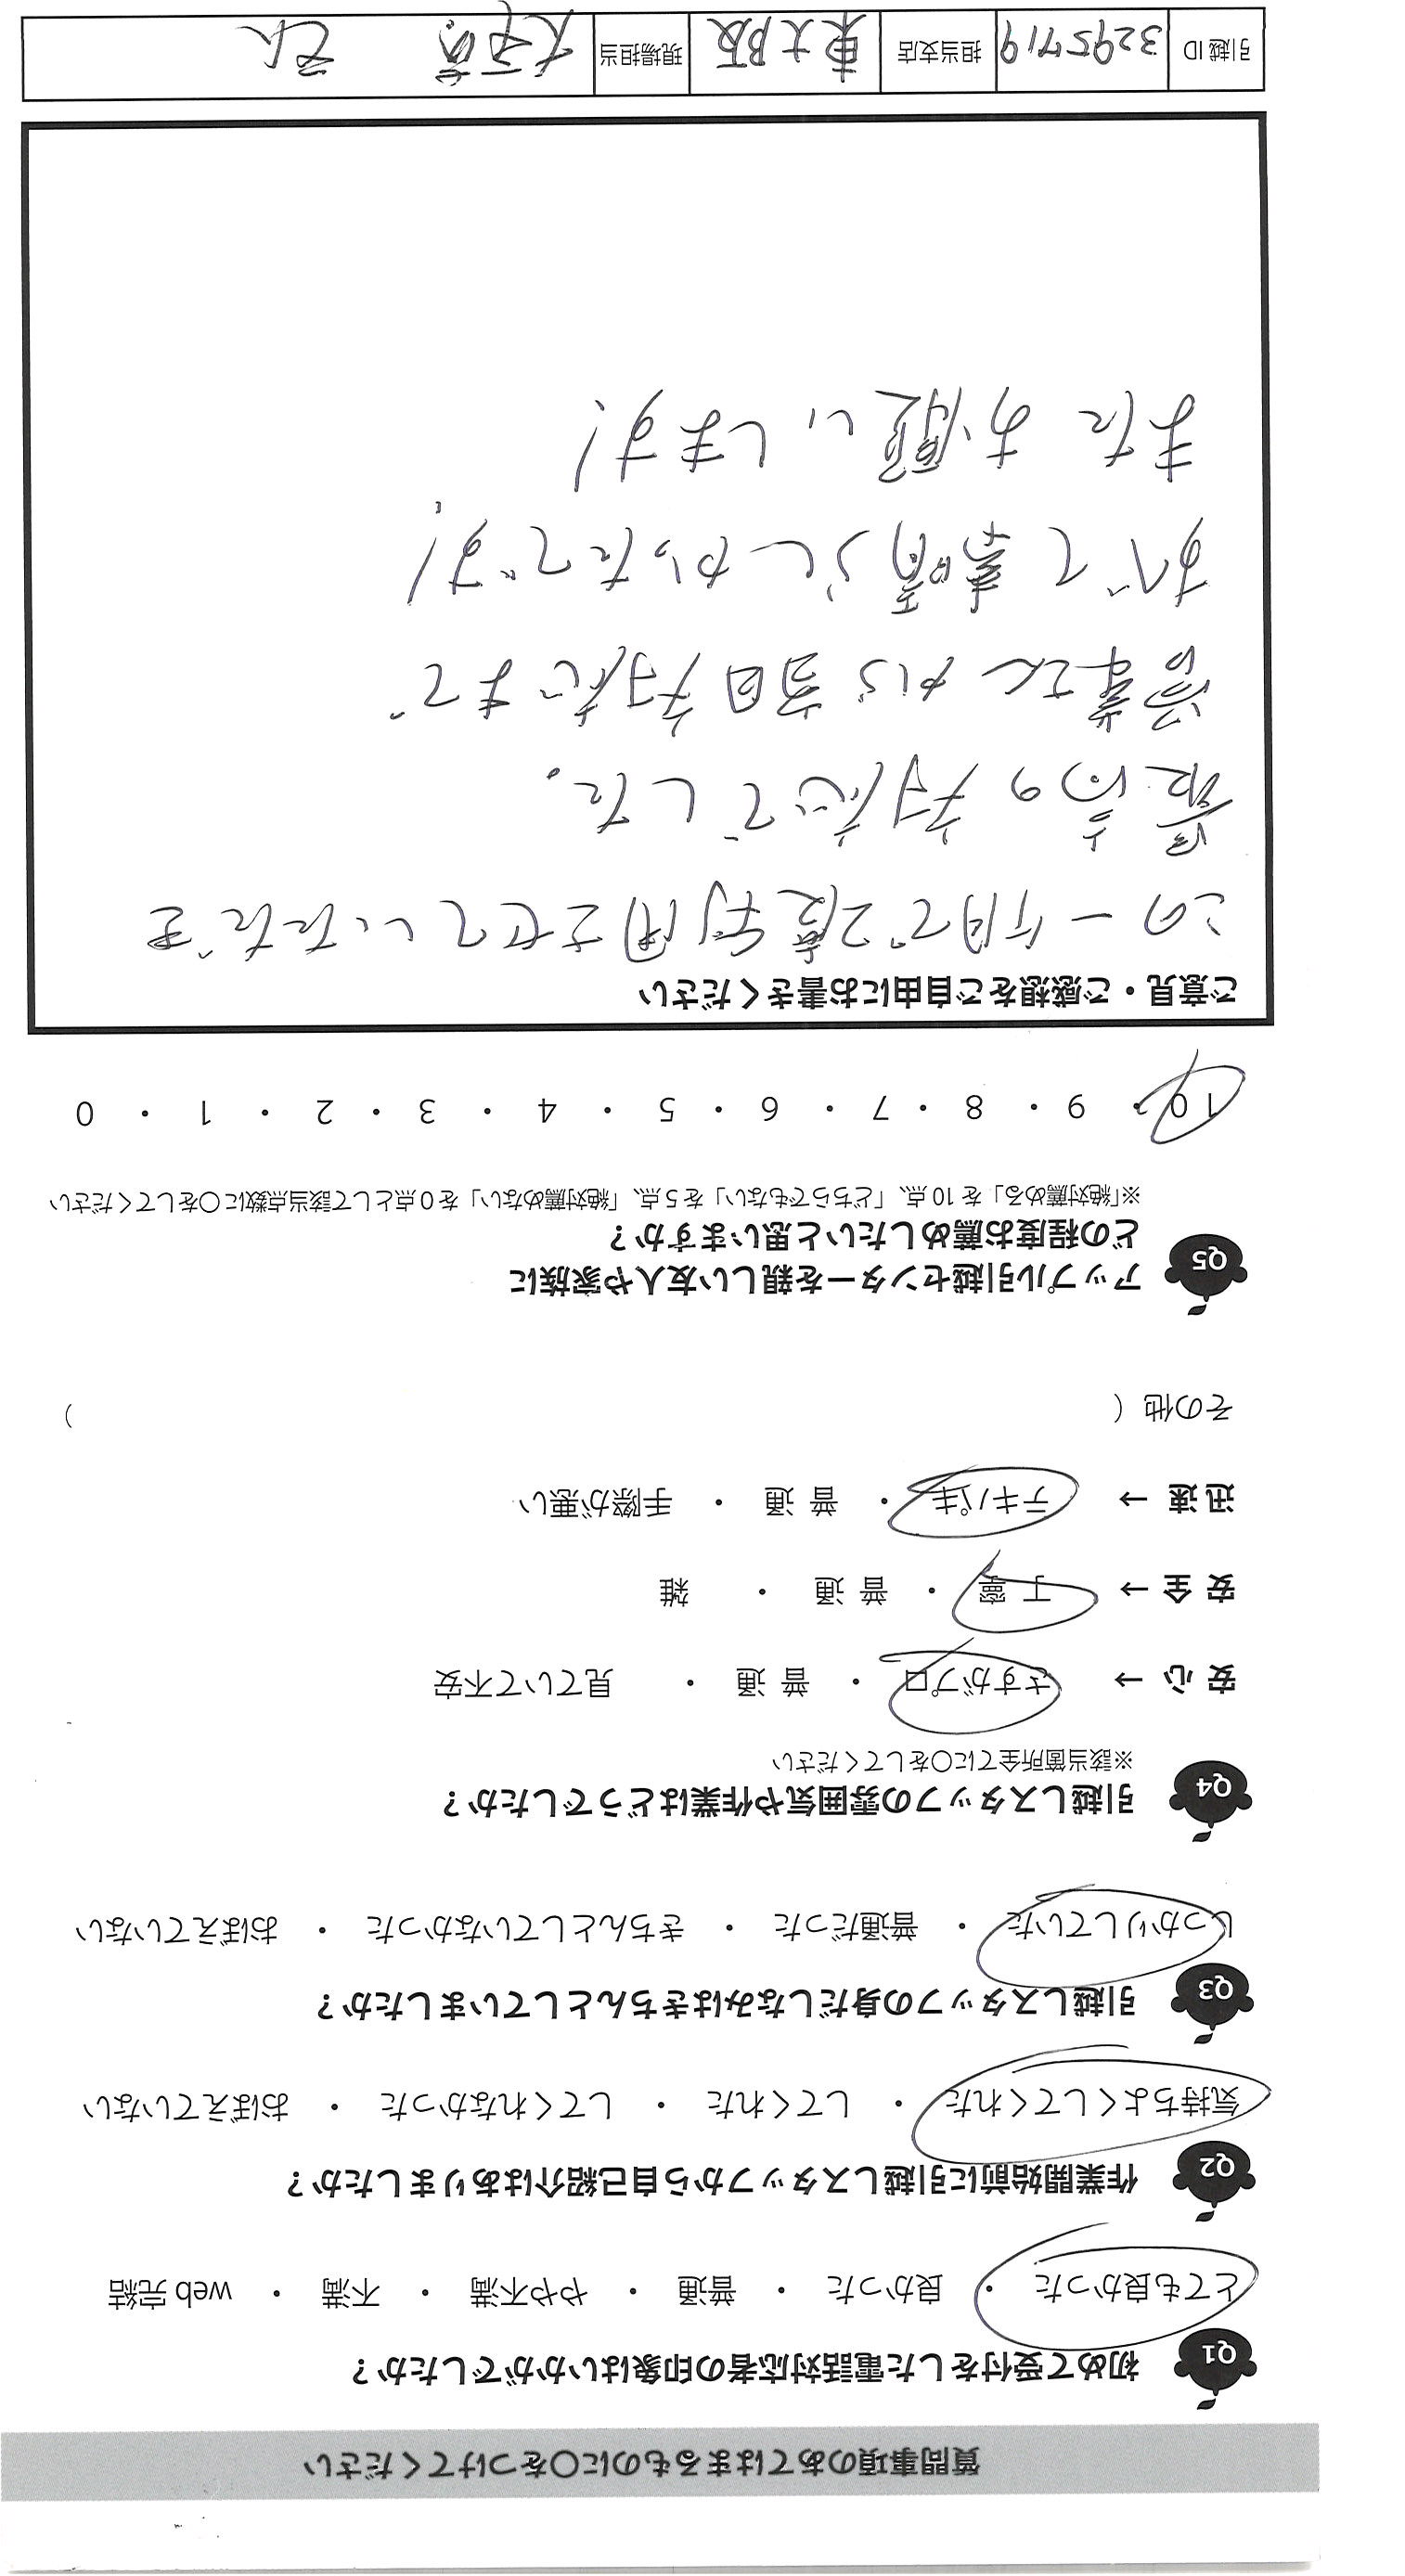 質問事項のあてはまるものに〇をつけてください
Q1 初めて受付をした電話対応者の印象はいかがでしたか？
とても良かった ・ 良かった ・ 普通 ・ やや不満 ・ 不満 ・ web 完結
Q2 作業開始前に引越しスタッフから自己紹介はありましたか？
気持ちよくしてくれた ・ してくれた ・ してくれなかった ・ おぼえていない
Q3 引越しスタッフの身だしなみはきちんとしていましたか？
しっかりしていた ・ 普通だった ・ きちんとしていなかった ・ おぼえていない
Q4 引越しスタッフの雰囲気や作業はどうでしたか？
※該当箇所全てに〇をしてください
安心 → さすがプロ ・ 普通 ・ 見ていて不安
安全 → 丁寧 ・ 普通 ・ 雑
迅速 → テキパキ ・ 普通 ・ 手際が悪い
その他（ ）
Q5 アップル引越センターを親しい友人や家族に
どの程度お薦めしたいと思いますか？
※「絶対薦める」を 10 点、「どちらでもない」を 5 点、「絶対薦めない」を 0 点として該当点数に〇をしてください
10 ・ 9 ・ 8 ・ 7 ・ 6 ・ 5 ・ 4 ・ 3 ・ 2 ・ 1 ・ 0
ご意見・ご感想をご自由にお書きください
この一ヶ月で2度利用させていただき
最高の対応でした。
から当日対応まで
すべて素晴らしかったです!
またお願いします!
引越 ID 3295719 担当支店 東大阪 現場担当